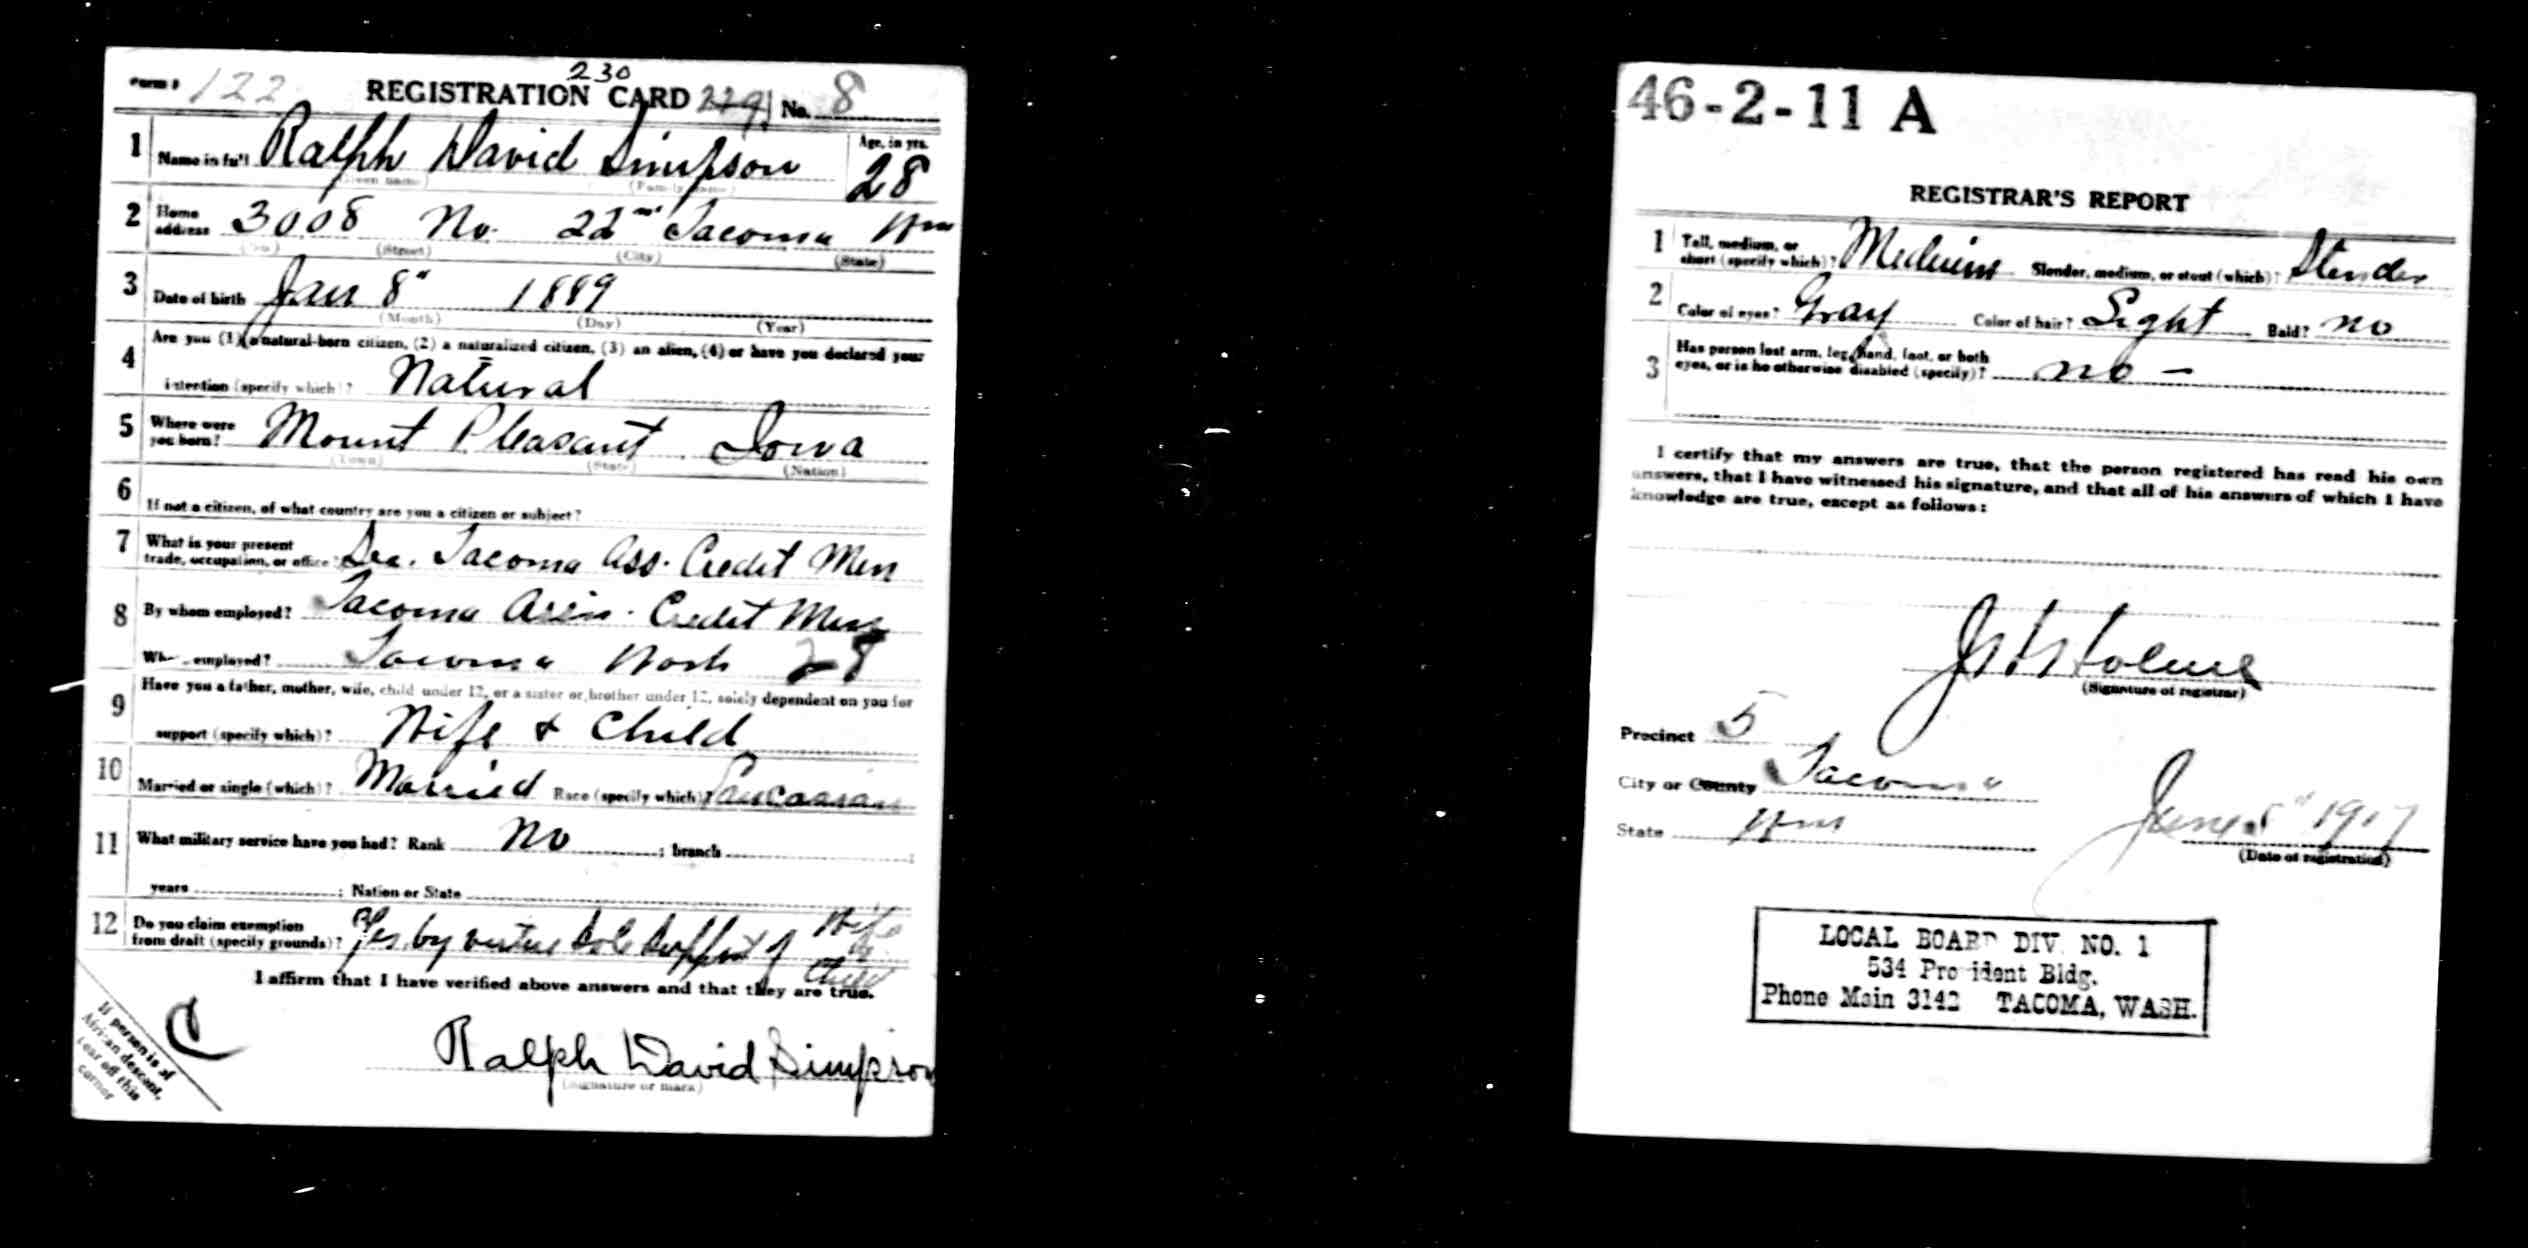 Form 1 122 REGISTRATION CARD 230 229 No. 8
1 Name in full Ralph David Simpson Age, in yrs. 28
(Given name) (Family name)
2 Home address 3008 No. 22nd Tacoma Wn
(No.) (Street) (City) (State)
3 Date of birth Jan 8" 1889
(Month) (Day) (Year)
4 Are you (1) a natural-born citizen, (2) a naturalized citizen, (3) an alien, (4) or have you declared your
intention (specify which)? Natural
5 Where were you born? Mount Pleasant Iowa
(Town) (State) (Nation)
6 If not a citizen, of what country are you a citizen or subject?
7 What is your present trade, occupation, or office? Sec. Tacoma Ass. Credit Men
8 By whom employed? Tacoma Assn. Credit Men
Where employed? Tacoma Wash 28
9 Have you a father, mother, wife, child under 12, or a sister or brother under 12, solely dependent on you for
support (specify which)? Wife & Child
10 Married or single (which)? Married Race (specify which)? Caucasian
11 What military service have you had? Rank No ; branch ;
years ; Nation or State
12 Do you claim exemption from draft (specify grounds)? Yes, by virtue Sole Support of Wife & Child
I affirm that I have verified above answers and that they are true.
C
Ralph David Simpson
(Signature or mark)
If person is of
African descent,
tear off this
corner
46-2-11 A
REGISTRAR'S REPORT
1 Tall, medium, or short (specify which)? Medium Slender, medium, or stout (which)? Slender
2 Color of eyes? Gray Color of hair? Light Bald? no
3 Has person lost arm, leg, hand, foot, or both eyes, or is he otherwise disabled (specify)? no -
I certify that my answers are true, that the person registered has read his own
answers, that I have witnessed his signature, and that all of his answers of which I have
knowledge are true, except as follows:
(Signature of registrar)
Precinct 5
City or County Tacoma
State Wn
June 5" 1917
(Date of registration)
LOCAL BOARD DIV. NO. 1
534 Provident Bldg.
Phone Main 3142 TACOMA, WASH.